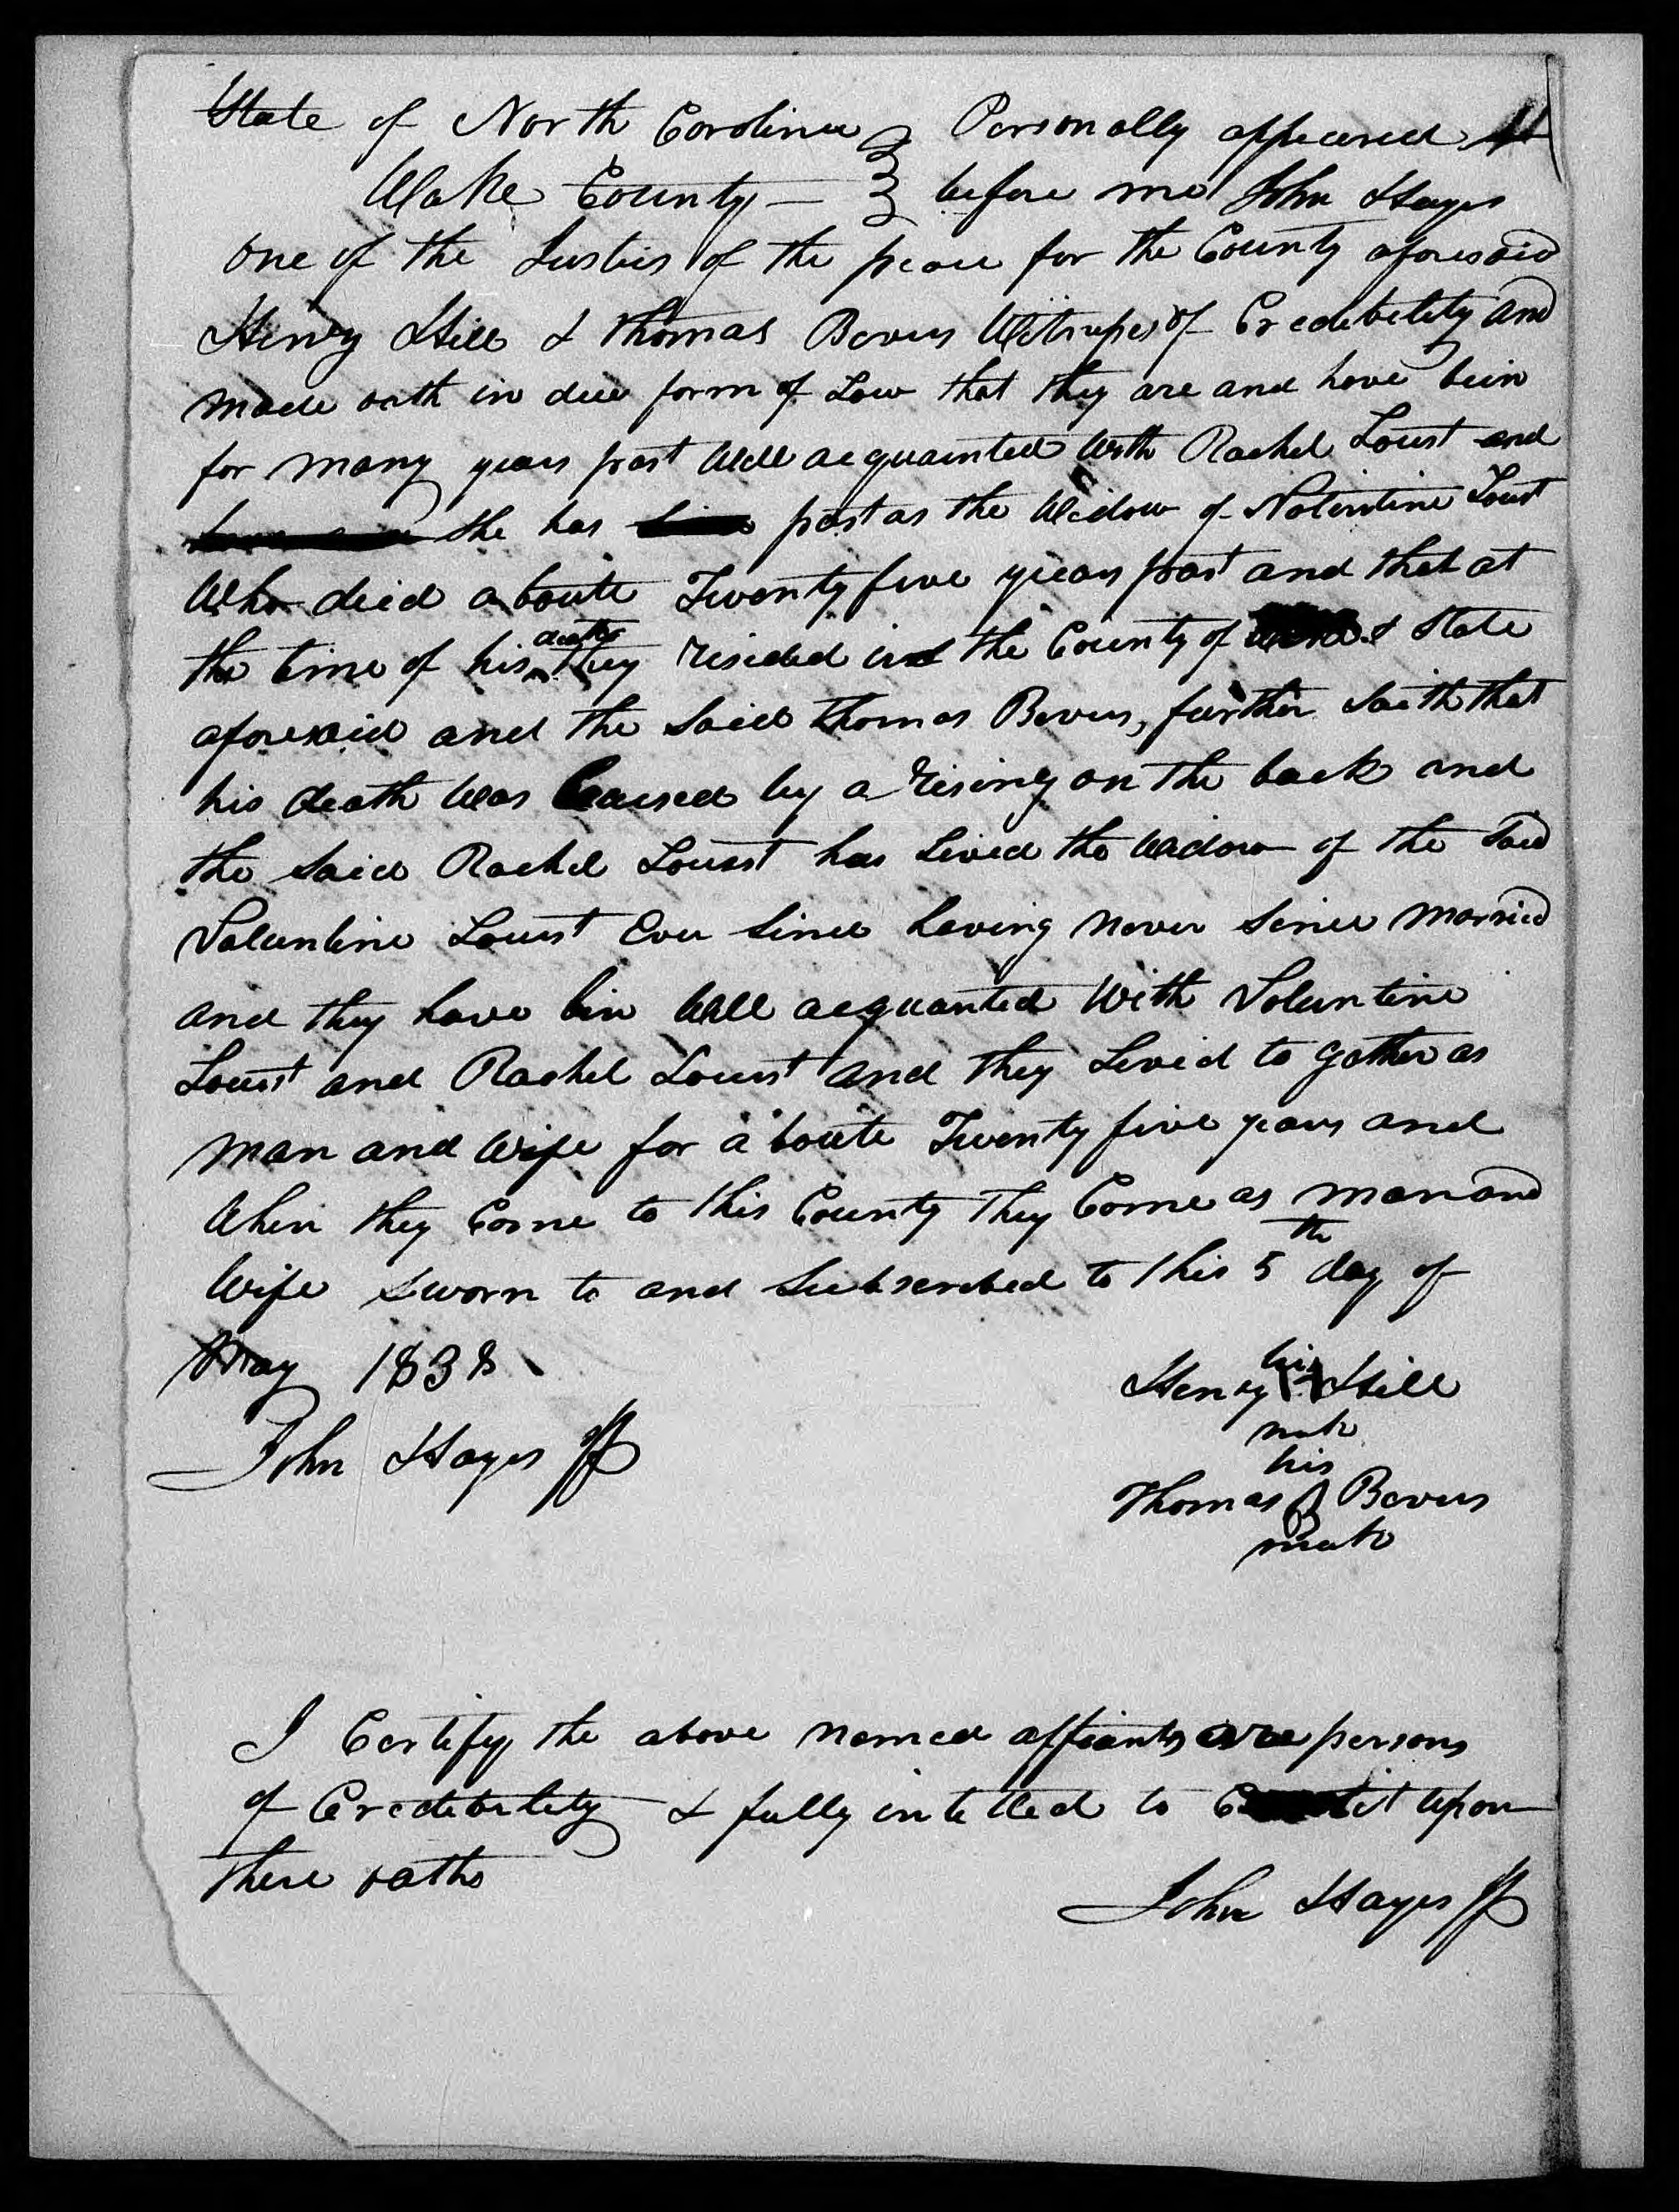 State of North Carolina } Personally appeared
Wake County — } before me John Hayes
one of the Justies of the peace for the County aforesaid
Henry Hill & Thomas Bevers Witnesses of Credebility and
made oath in due form of Law that they are and have bein
for many years past Well acquainted With Rachel Loust and
she has past as the Widow of Volentine Loust
Who died aboute Twenty five years past and that at
the time of his death they resided in the County of & State
aforesaid and the Said Thomas Bevers, further Saith that
his death Was Caused by a rising on the back and
the Said Rachel Loust has Lived the Widow of the Said
Voluntine Loust Ever Since having never Since married
and they have bin Well acquanted With Voluntine
Loust and Rachel Loust and they Livid to gather as
man and Wife for a boute Twenty five years and
When they Come to this County they Come as man and
Wife Sworn to and Subscribed to this 5th day of
May 1838
Henry his Hill
mark
John Hayes JP
his
Thomas B Bevers
mark
I Certify the above named affiants are persons
of Credebility & fully intitled to upon
there oaths
John Hayes JP